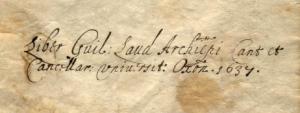 Liber Guil: Laud Archiepi Cant et
Cancellar: Universit: Oxōn. 1637.